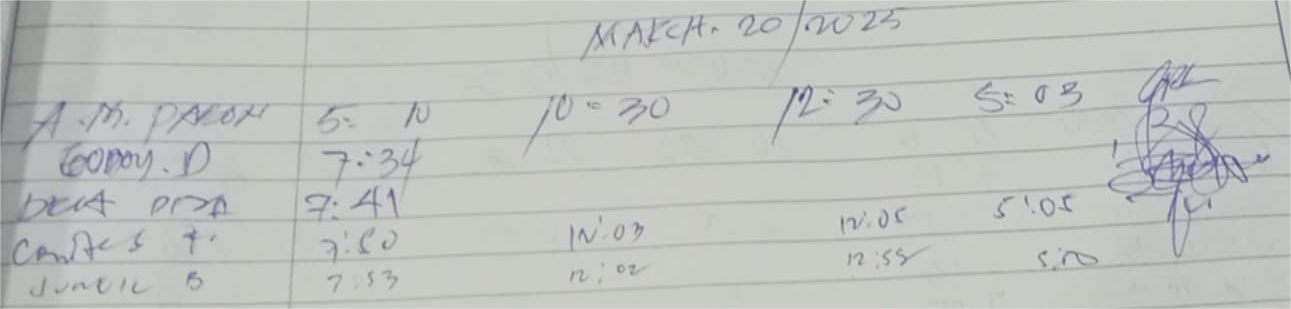 MARCH. 20/2025
A.M. 5: 10 10=30 12: 30 5= 03
GODOY. D 7:34
DELA 7:41
7:50 12:03 12:05 5:05
JUNEIL B 7:53 12:02 12:55 5:10